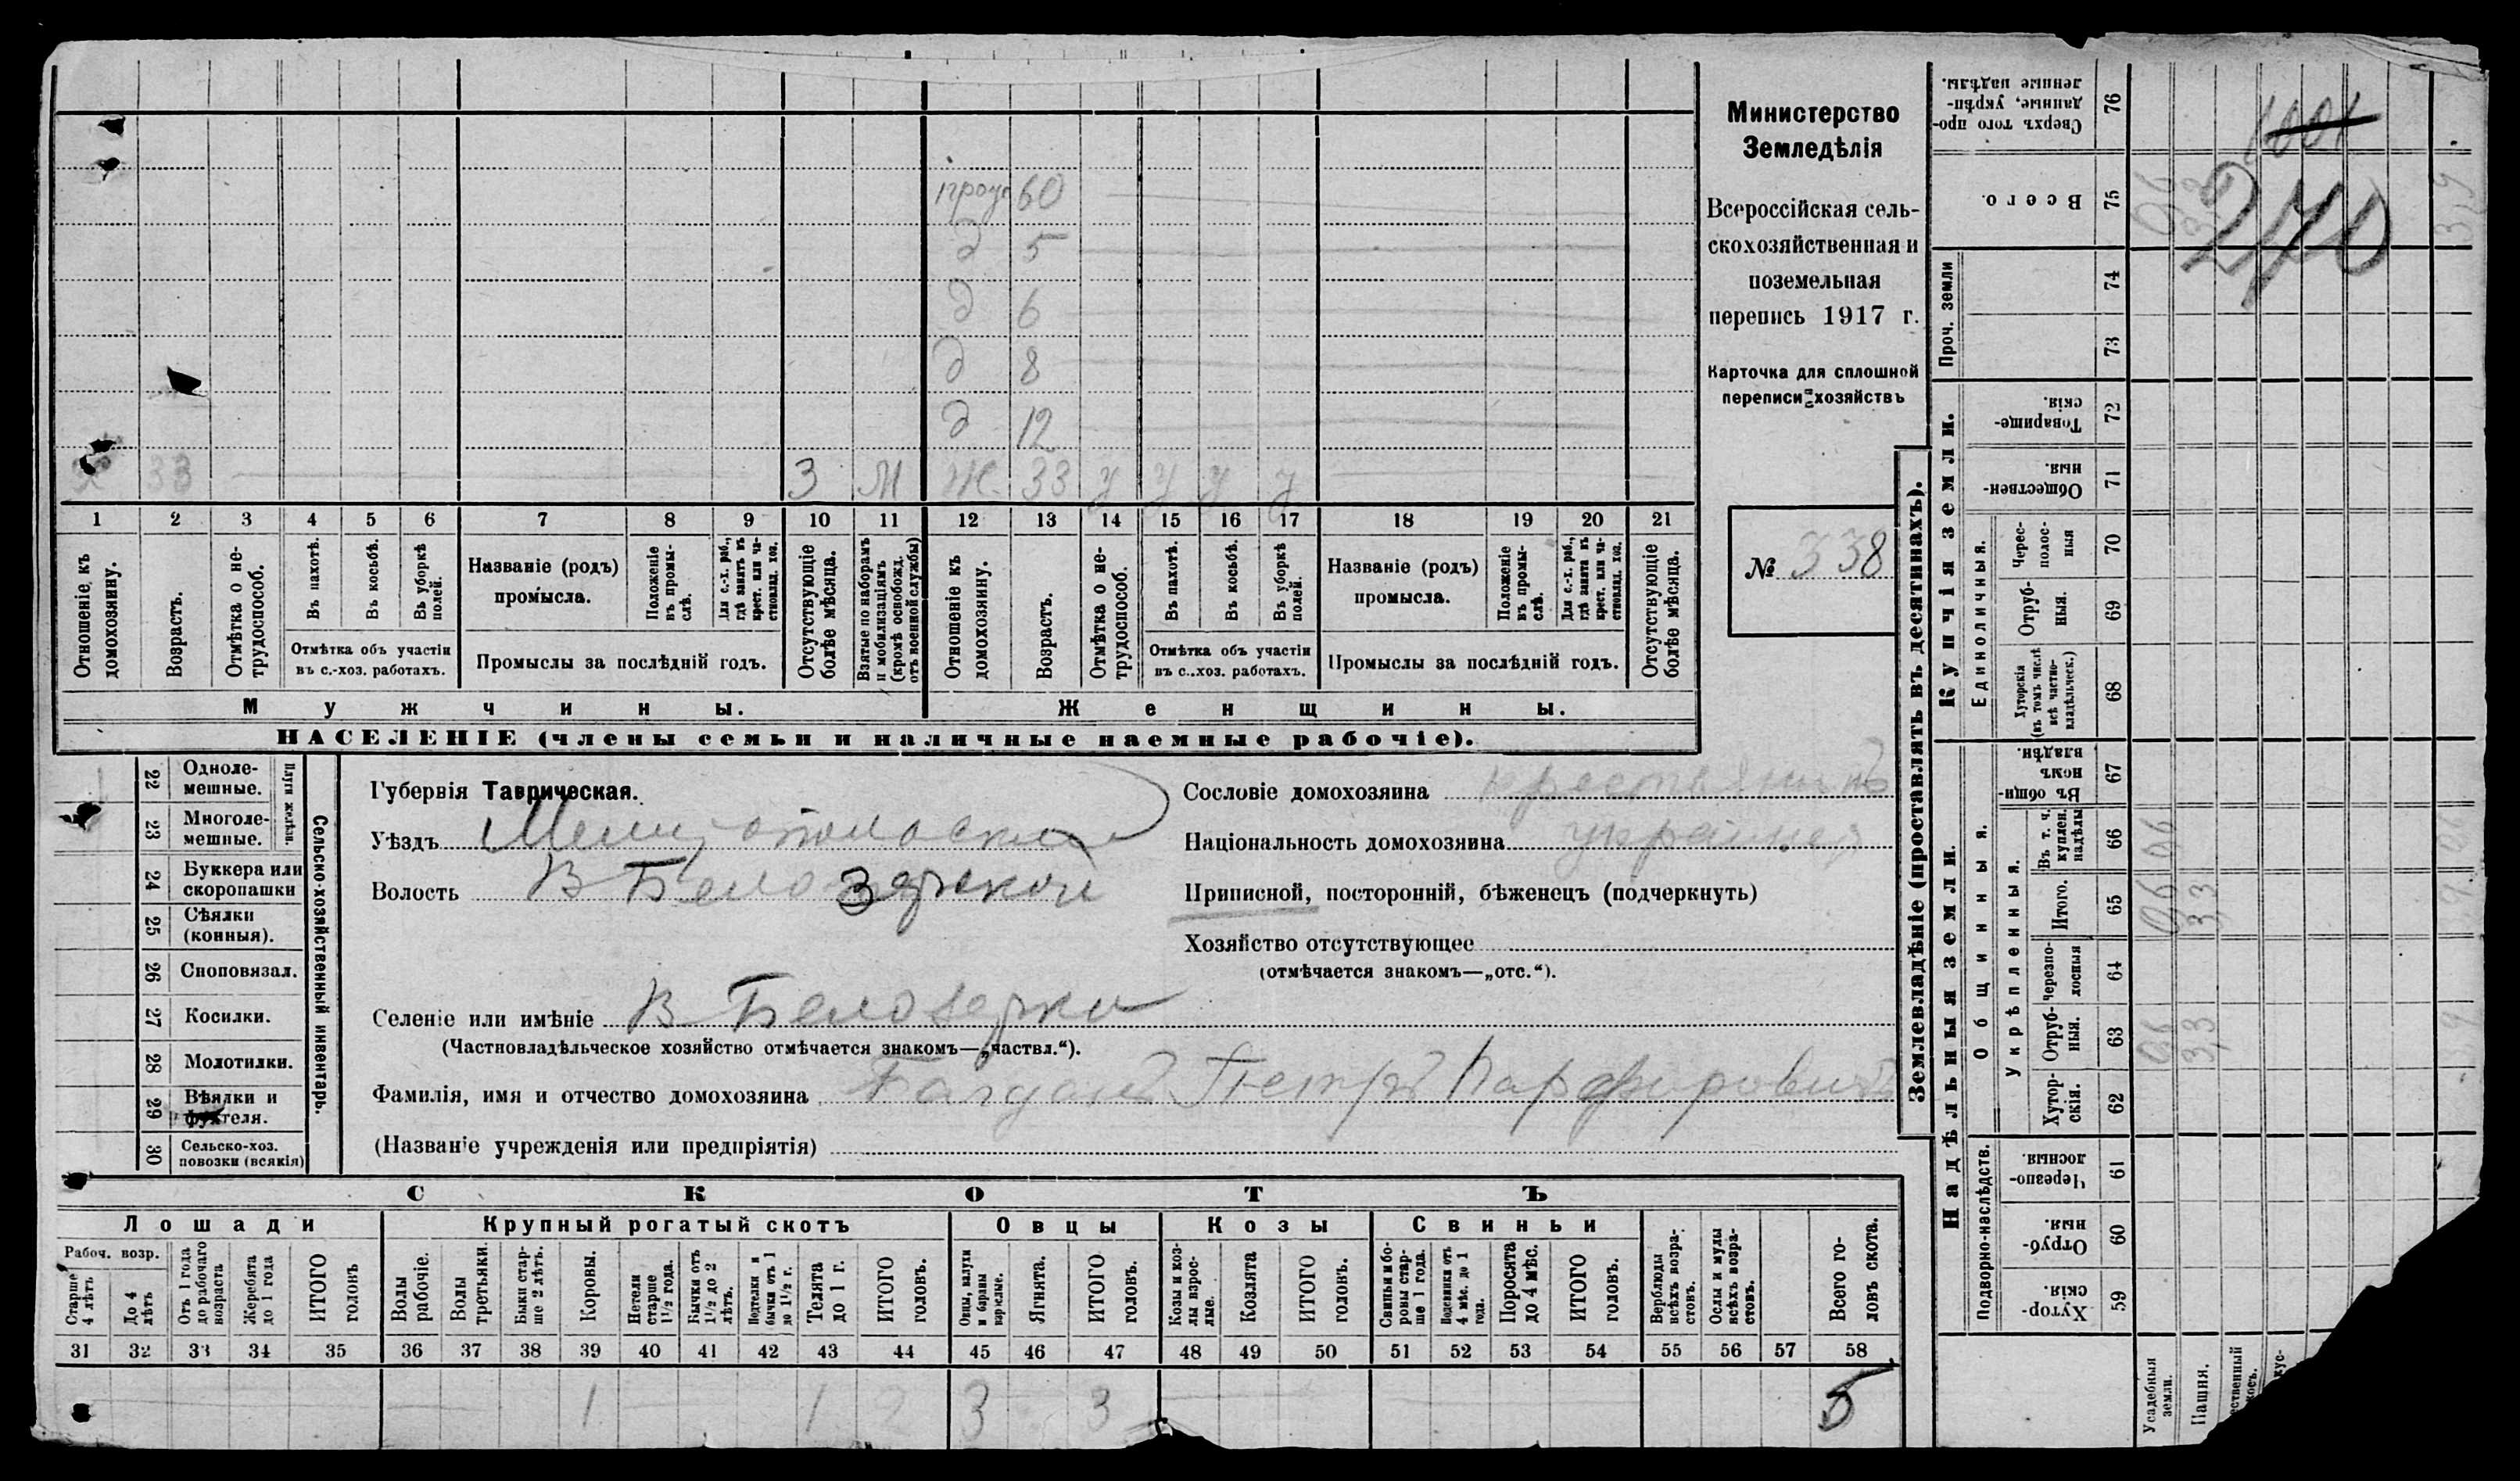 Министерство
Земледѣлія
Всероссійская сель-
скохозяйственная и
поземельная
перепись 1917 г.
Карточка для сплошной
переписи хозяйствъ
№ 338
60
д 5
д 6
д 8
д 12
х 33 3 М ж. 33 у у у у
1 2 3 4 5 6 7 8 9 10 11 12 13 14 15 16 17 18 19 20 21
Отношеніе къ домохозяину.
Возрастъ.
Отмѣтка о не-трудоспособ.
Въ пахотѣ.
Въ косьбѣ.
Въ уборкѣ полей.
Отмѣтка объ участіи
въ с.-хоз. работахъ.
Названіе (родъ)
промысла.
Положеніе въ промы-слѣ.
Для с.-х. раб., гдѣ занятъ въ крест. или ча-стновлад. хоз.
Промыслы за послѣдній годъ.
Отсутствующіе болѣе мѣсяца.
Взятые по наборамъ и мобилизаціямъ (кромѣ освобожд. отъ военной службы)
Отношеніе къ домохозяину.
Возрастъ.
Отмѣтка о не-трудоспособ.
Въ пахотѣ.
Въ косьбѣ.
Въ уборкѣ полей.
Отмѣтка объ участіи
въ с.-хоз. работахъ.
Названіе (родъ)
промысла.
Положеніе въ промы-слѣ.
Для с.-х. раб., гдѣ занята въ крест. или ча-стновлад. хоз.
Промыслы за послѣдній годъ.
Отсутствующіе болѣе мѣсяца.
Мужчины.
Женщины.
НАСЕЛЕНІЕ (члены семьи и наличные наемные рабочіе).
22 Одноле-мешные.
23 Многоле-мешные.
Плуги желѣзн.
24 Буккера или скоропашки
25 Сѣялки (конныя).
26 Сноповязал.
27 Косилки.
28 Молотилки.
29 Вѣялки и фухтеля.
30 Сельско-хоз. повозки (всякія)
Сельско-хозяйственный инвентарь.
Губернія Таврическая.
Уѣздъ Мелитопольский
Волость В Белозерской
Селеніе или имѣніе В Белозерка
(Частновладѣльческое хозяйство отмѣчается знакомъ—„частвл.“).
Фамилія, имя и отчество домохозяина Петръ Парфировичъ
(Названіе учрежденія или предпріятія)
Сословіе домохозяина крестьянинъ
Національность домохозяина украинец
Приписной, посторонній, бѣженецъ (подчеркнуть)
Хозяйство отсутствующее
(отмѣчается знакомъ—„отс.“).
СКОТЪ
Лошади
Крупный рогатый скотъ
Овцы
Козы
Свиньи
Рабоч. возр.
Старше 4 лѣтъ
До 4 лѣтъ
Отъ 1 года до рабочаго возраста
Жеребята до 1 года
ИТОГО головъ
Волы рабочіе.
Волы третьяки.
Быки стар-ше 2 лѣтъ.
Коровы.
Нетели старше 1½ года.
Бычки отъ 1½ до 2 лѣтъ.
Подтелки и бычки отъ 1 до 1½ г.
Телята до 1 г.
ИТОГО головъ.
Овцы, валухи и бараны взрослые.
Ягнята.
ИТОГО головъ.
Козы и коз-лы взрос-лые.
Козлята
ИТОГО головъ.
Свиньи и бо-ровы стар-ше 1 года.
Подсвинки отъ 4 мѣс. до 1 года.
Поросята до 4 мѣс.
ИТОГО головъ.
Верблюды всѣхъ возра-стовъ.
Ослы и мулы всѣхъ возра-стовъ.
Всего го-ловъ скота.
31 32 33 34 35 36 37 38 39 40 41 42 43 44 45 46 47 48 49 50 51 52 53 54 55 56 57 58
1 1 2 3 3 5
Землевладѣніе (проставлять въ десятинахъ).
Надѣльныя земли.
Купчія земли.
Проч. земли
Подворно-наслѣдств.
Общинныя.
Укрѣпленныя.
Единоличныя.
Хутор-скія. 59
Отруб-ныя. 60
Черезпо-лосныя. 61
Хутор-скія. 62
Отруб-ныя. 63
Черезпо-лосныя 64
Итого. 65
Въ т. ч. куплен. надѣлы 66
Въ общи-номъ владѣн. 67
Хуторскія (въ томъ числѣ всѣ частно-владѣльческ.) 68
Отруб-ныя. 69
Черес-полос-ныя 70
Обществен-ныя. 71
Товарище-скія. 72
73
74
Всего. 75
Сверхъ того про-данные, укрѣп-ленные надѣлы. 76
Усадебныя земли.
Пашня.
06 06 06 06
3,3 3,3 3,3
3,9 3,9 3,9
270